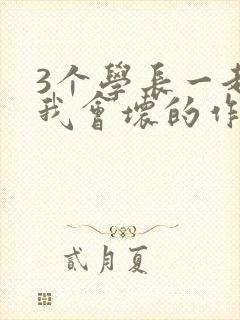 3个學長一起
我會壞的作
貳月夏